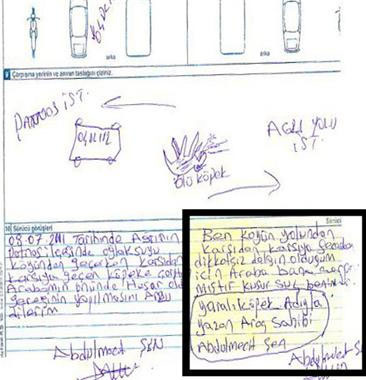 arka
arka
9 Çarpışma yerinin ve anının taslağını çiziniz.
PATNOS İST.
AĞRI YOLU
İST.
ölü köpek
10 Sürücü görüşleri
08.07.2011 Tarihinde Ağrının
Patnos ilçesinde
köyünden geçerken karşıdan
karşıya geçen köpeğe çarptım
Arabamın önünde Hasar
gereğinin yapılmasını Arz
ederim
Abdulmecit ŞEN
Sürücü
Ben köyün yolundan
karşıdan karşıya geçerken
dikkatsiz dalgın olduğum
için Araba bana çarp
mıştır kusur suç bendedir.
yaralı köpek Adıyla
yazan Araç sahibi
Abdulmecit Şen